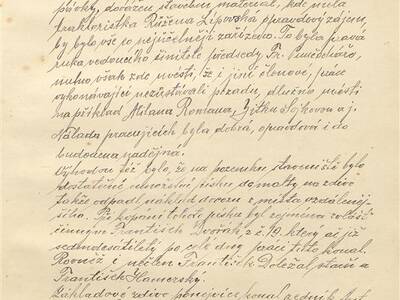 písky, dovozem stavební materiál, kde měla
traktoristka Růžena Lipovská opravdový zájem,
by bylo vše co nejúčelněji zařízeno. To byla pravá
ruka vedoucího činitele předsedy Fr.
nutno však zde uvésti, že i jiní členové, práce
vykonávající nezůstávali pozadu, dlužno uvésti
na příklad Milana Romana, Jitku Sojkovou a j.
Nálada pracujících byla dobrá, opravdová i do
budoucna nadějná.
Výhodou též bylo, že na pozemku staveniště bylo
dostatečné množství písku do malty na zdivo
takže odpadl náklad dovozu z místa vzdáleněj-
šího. Při kopání tohoto písku byl zejména zvlášť
činným František Dvořák z č. 19. který ač již
sedmdesátiletý po celé dny práci tuto konal.
Rovněž i učitel František Doležal, starší a
František Hamerský.
Základové zdivo ponejvíce konal zedník Ant.